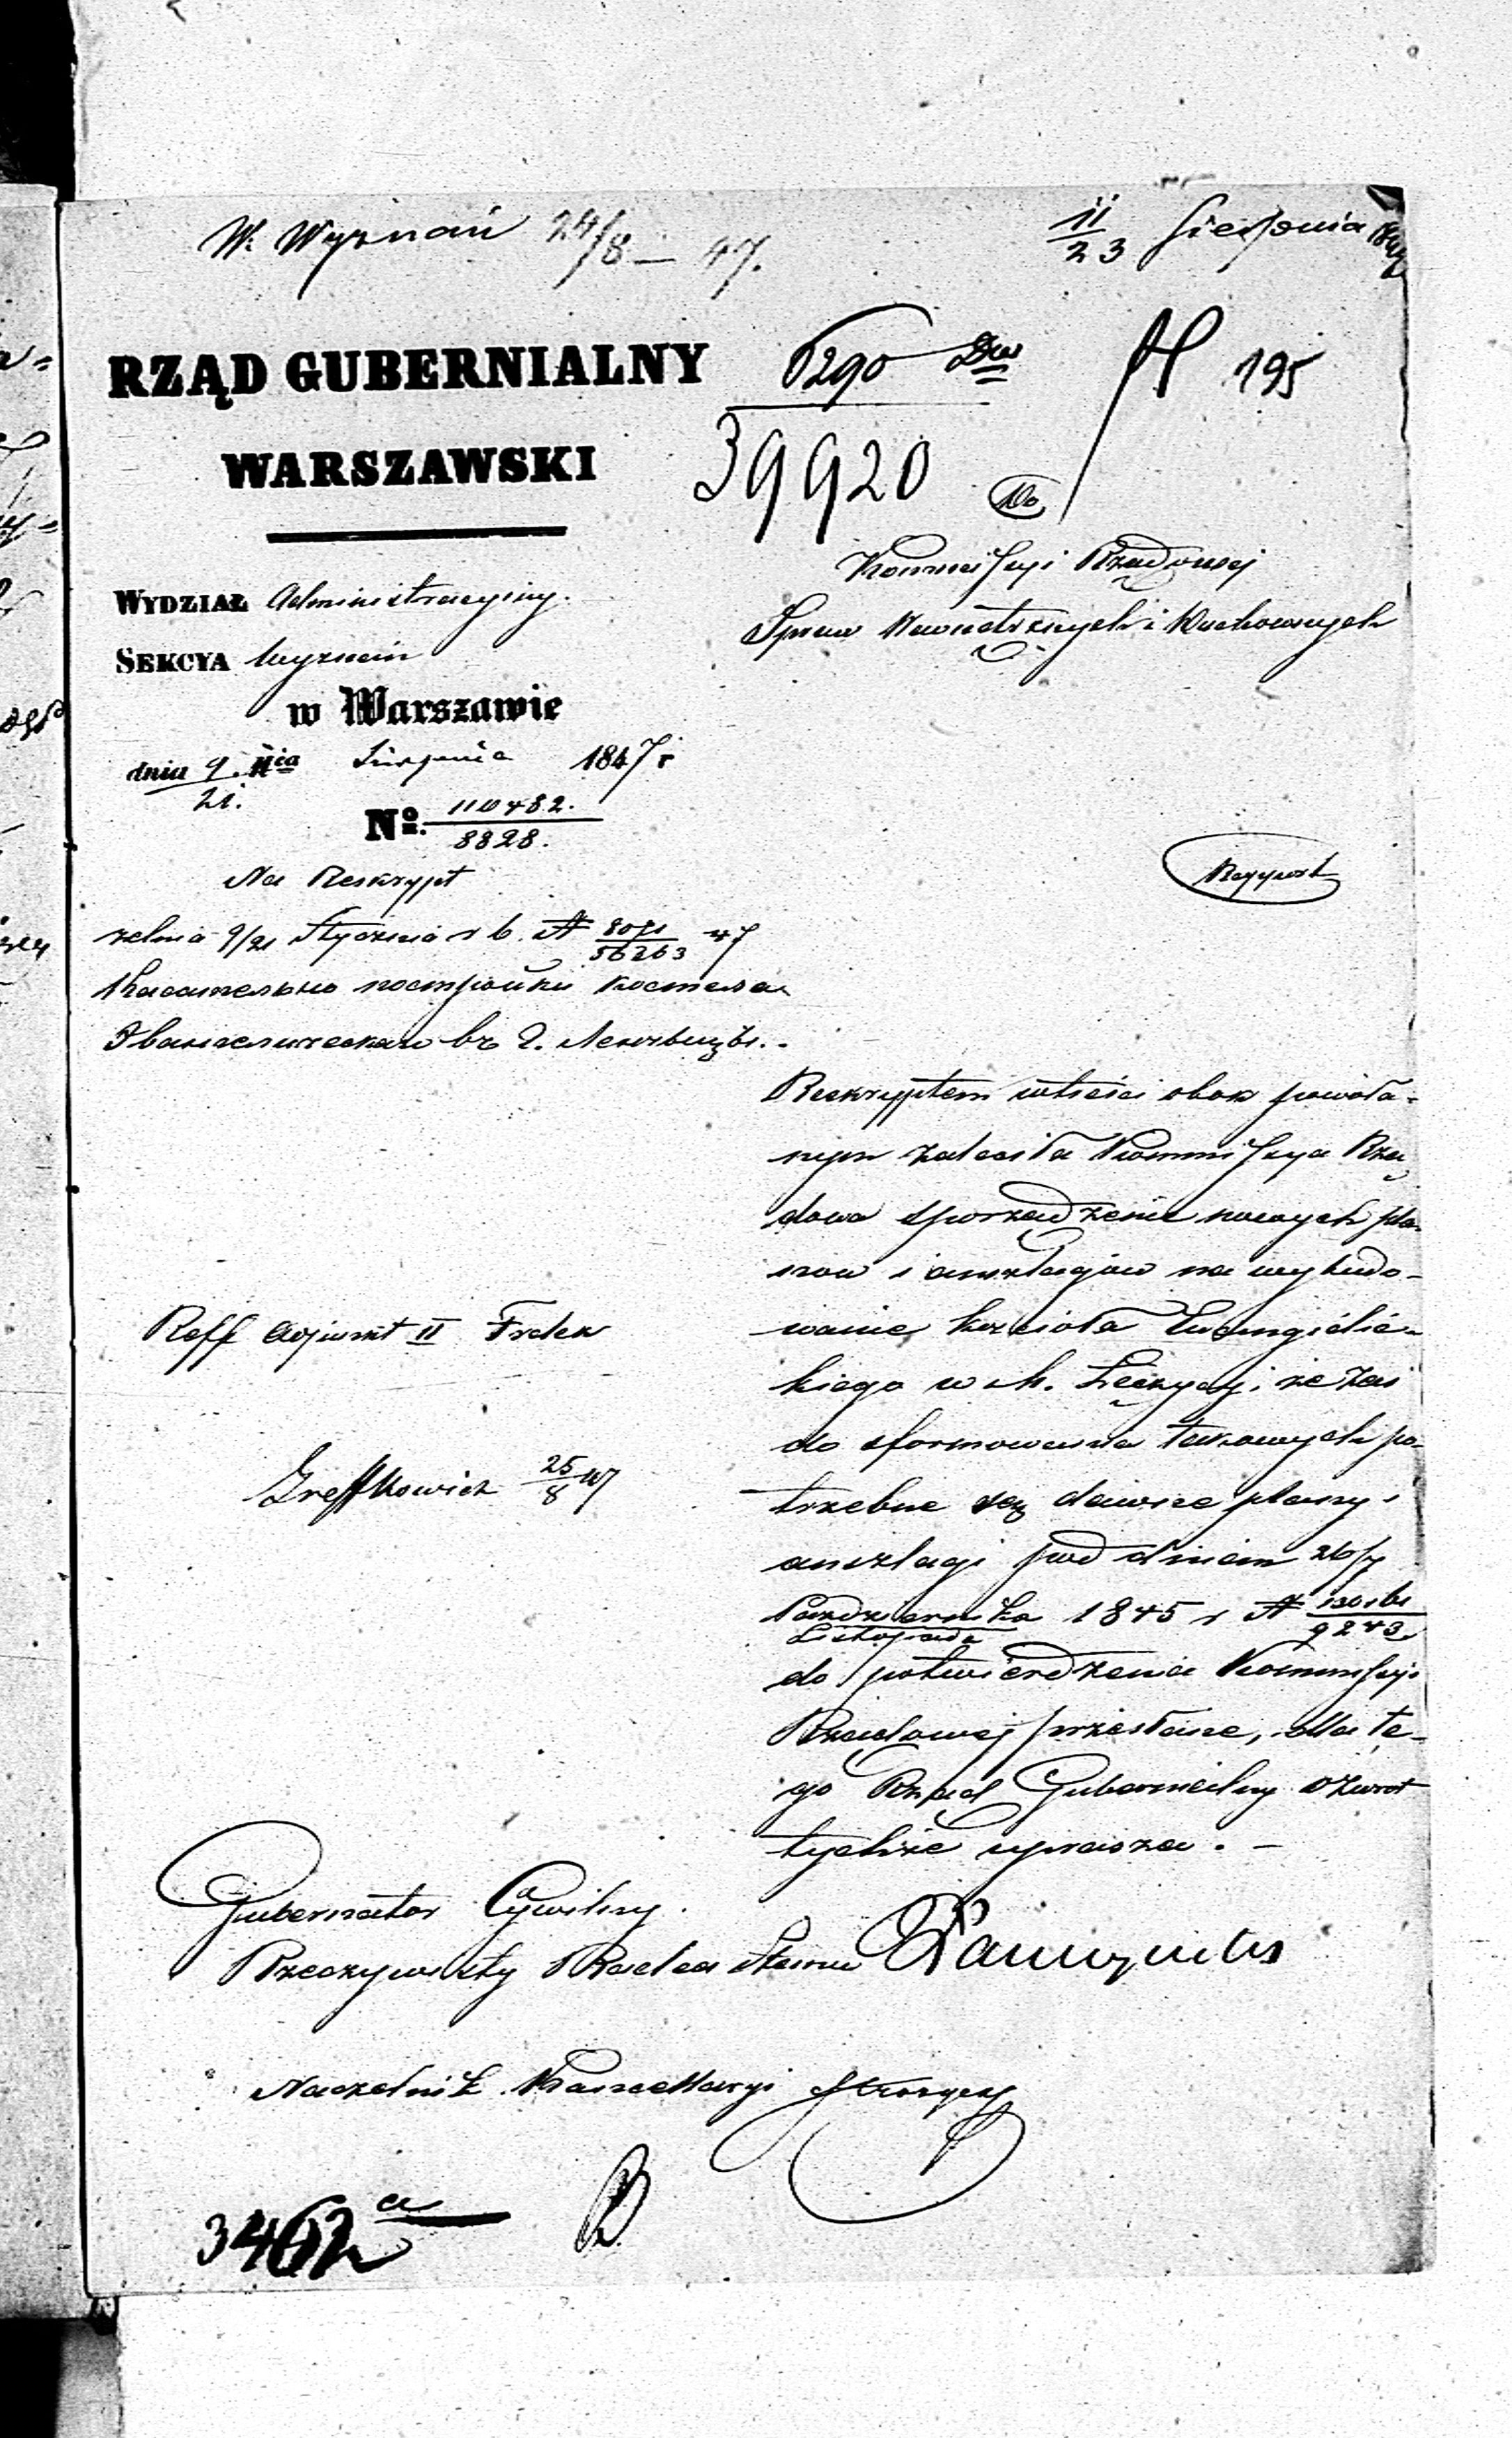 W. Wyznań 24/8 – 47.
11/23 Sierpnia 1847
RZĄD GUBERNIALNY
WARSZAWSKI
39920
195
Do
Kommissyi Rządowej
Spraw Wewnętrznych i Duchownych
WYDZIAŁ Administracyiny.
SEKCYA Wyznań
w Warszawie
dnia 9/21. Sierpnia 1847 r
No. 110482./8828.
Na Reskrypt
Rapport
z dnia 9/21 Stycznia r b. N 56263 47
Касательно постройки костела
Евангелическаго въ Г. Ленчицѣ.
Reskryptem w treści obok powoła-
nym zaleciła Kommissya Rzą
dowa sporządzenie nowych pla-
nów i anszlagów na wybudo-
wanie kościoła Ewangelic-
kiego w M. Łęczycy; że zaś
do sformowania takowych po-
trzebne są dawne plany i
anszlagi pod dniem 26/7
Października/Listopada 1845 r N 9243
do potwierdzenia Kommissyi
Rządowej przesłane, dla te-
go Rząd Gubernialny o zwrot
tychże uprasza. –
Reff Adjunkt II
25/8 47
Gubernator Cywilny.
Rzeczywisty Radca Stanu
Naczelnik Kancellaryi